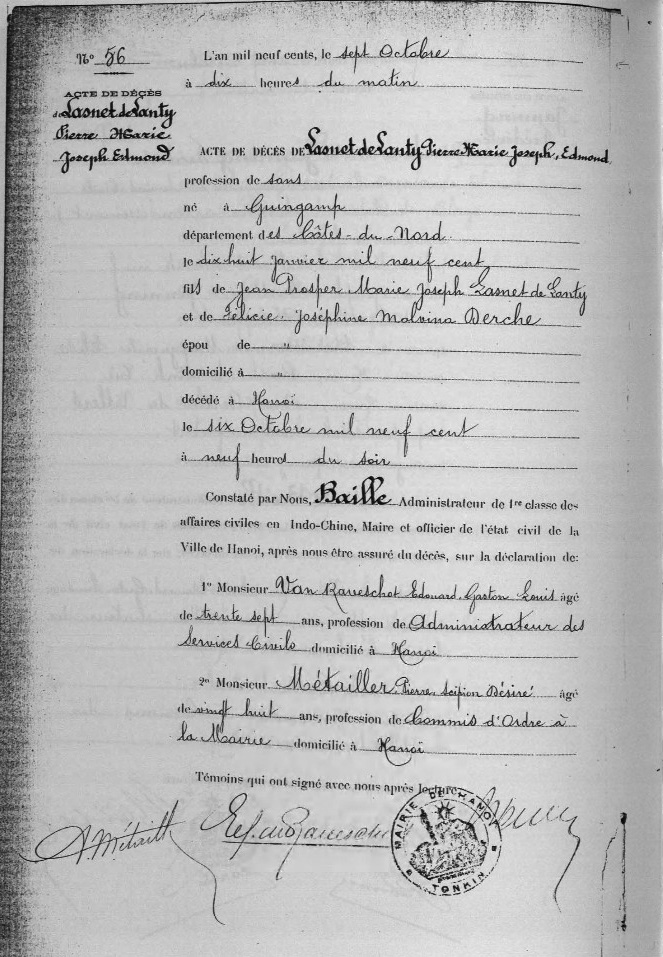 N° 56
L'an mil neuf cents, le sept Octobre
à dix heures du matin
ACTE DE DÉCÈS
de Lasnet de Lanty
Pierre Marie
Joseph Edmond
ACTE DE DÉCÈS DE Lasnet de Lanty Pierre Marie Joseph, Edmond
profession de sans
né à Guingamp
département des Côtes-du-Nord
le dix huit janvier mil neuf cent
fils de Jean Prosper Marie Joseph Lasnet de Lanty
et de Félicie Joséphine Malvina Derche
épou de "
domicilié à "
décédé à Hanoï
le six Octobre mil neuf cent
à neuf heures du soir
Constaté par Nous, Baille Administrateur de 1re classe des
affaires civiles en Indo-Chine, Maire et officier de l'état civil de la
Ville de Hanoi, après nous être assuré du décès, sur la déclaration de:
1° Monsieur Van Raveschot Edouard Gaston Louis âgé
de trente sept ans, profession de Administrateur des
Services Civils domicilié à Hanoï
2° Monsieur Métailler, Pierre, Scipion Désiré âgé
de vingt huit ans, profession de Commis d'Ordre à
la Mairie domicilié à Hanoï
Témoins qui ont signé avec nous après lecture
MAIRIE DE HANOI
TONKIN